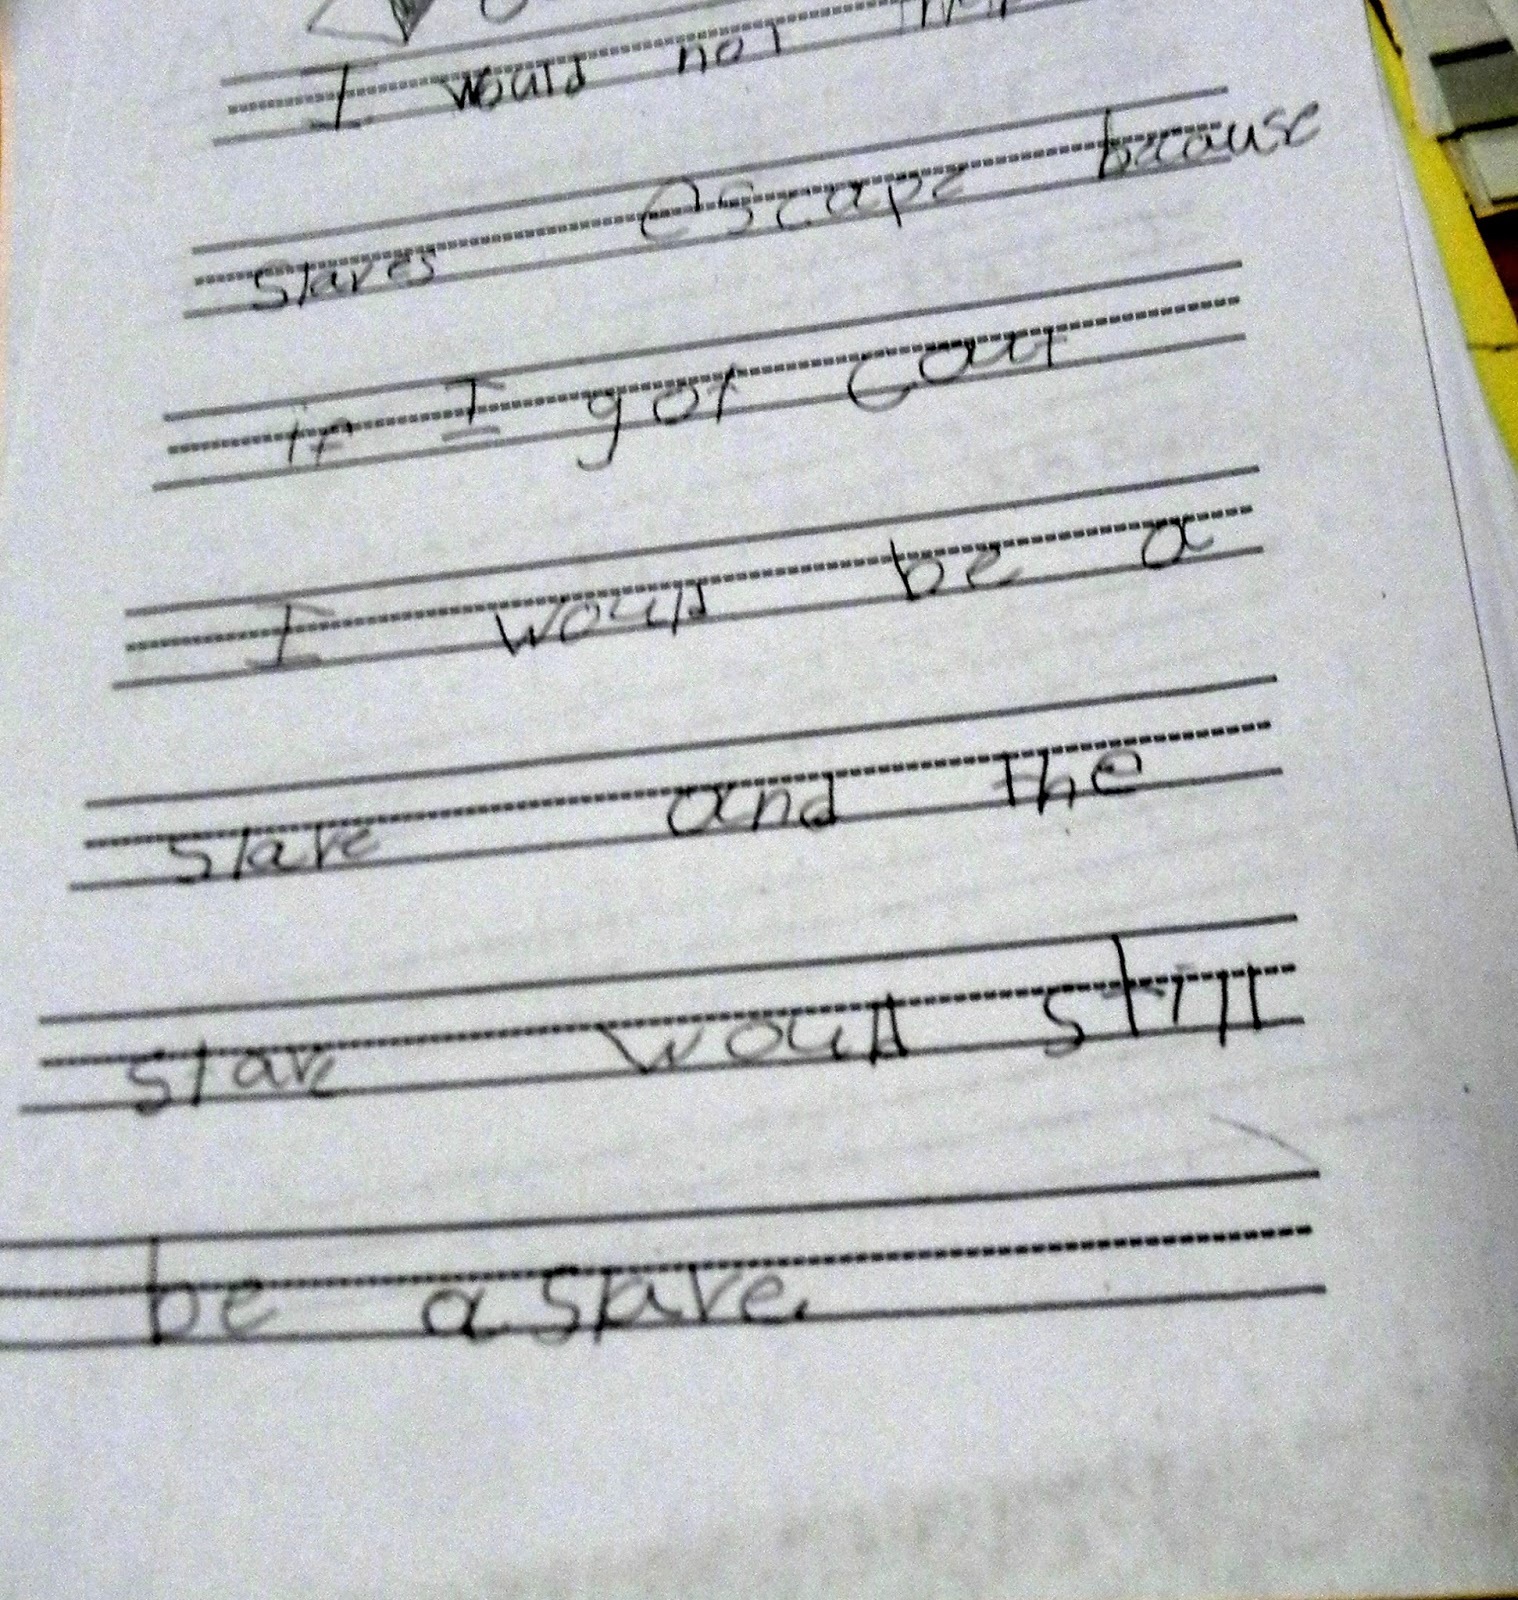 I would not
slaves escape because
if I got caut
I would be a
slave and the
slave would still
be a slave.